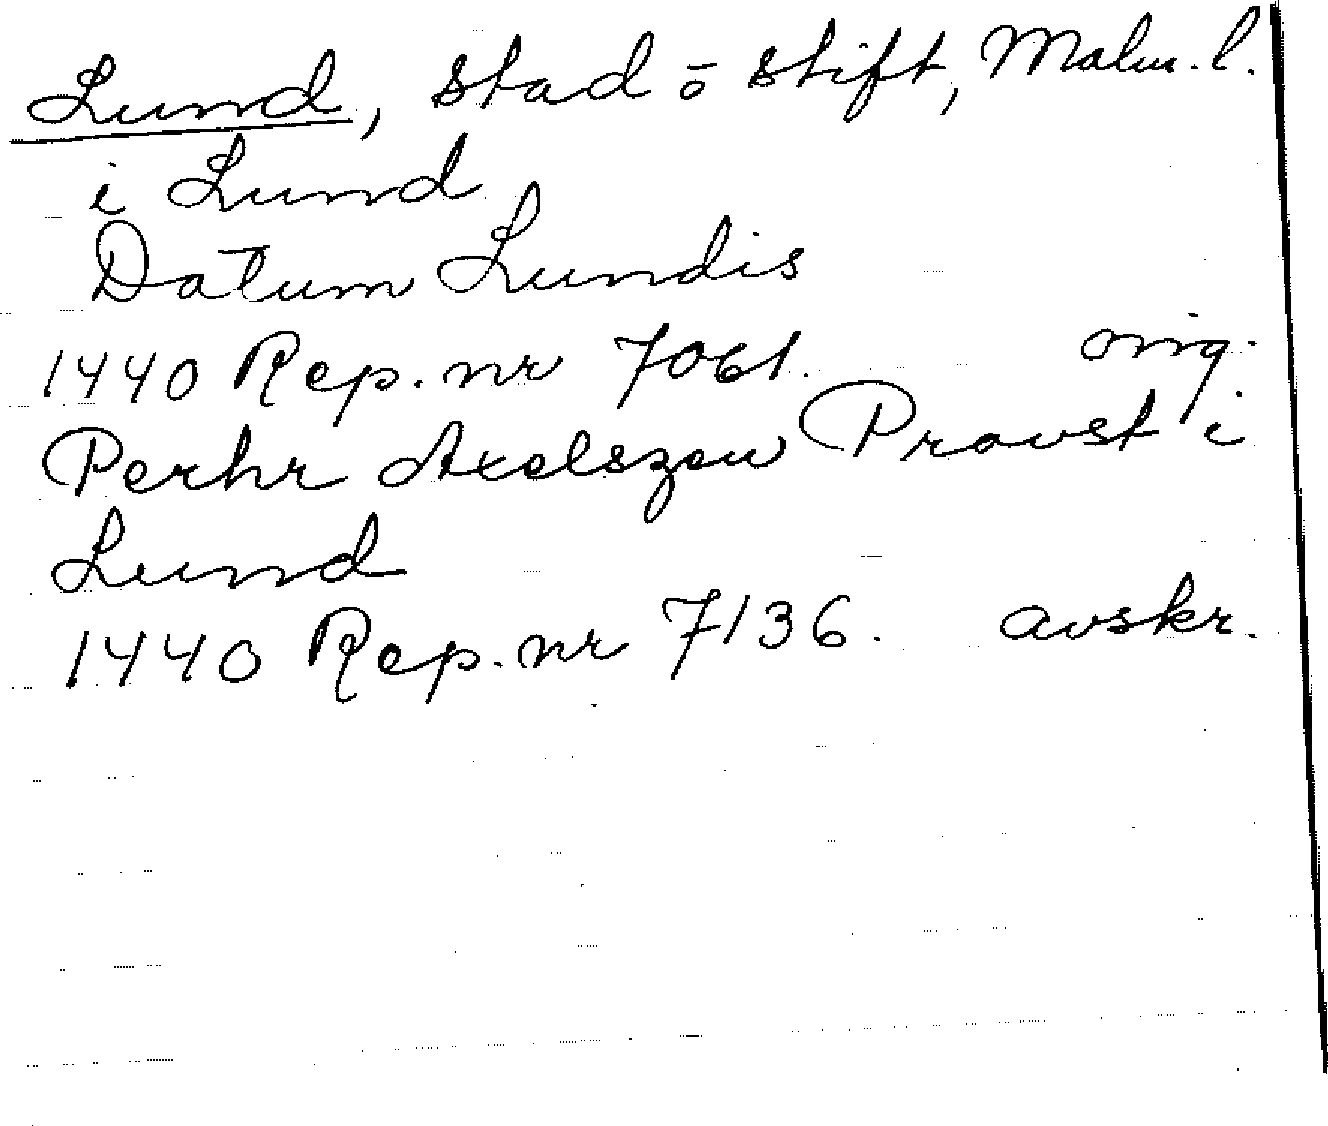 Lund, stad o stift, Malm. l.
i Lund
Datum Lundis
1440 Rep. nr 7061. orig.
Perhr Axelszen Provst i
Lund
1440 Rep. nr 7136. avskr.